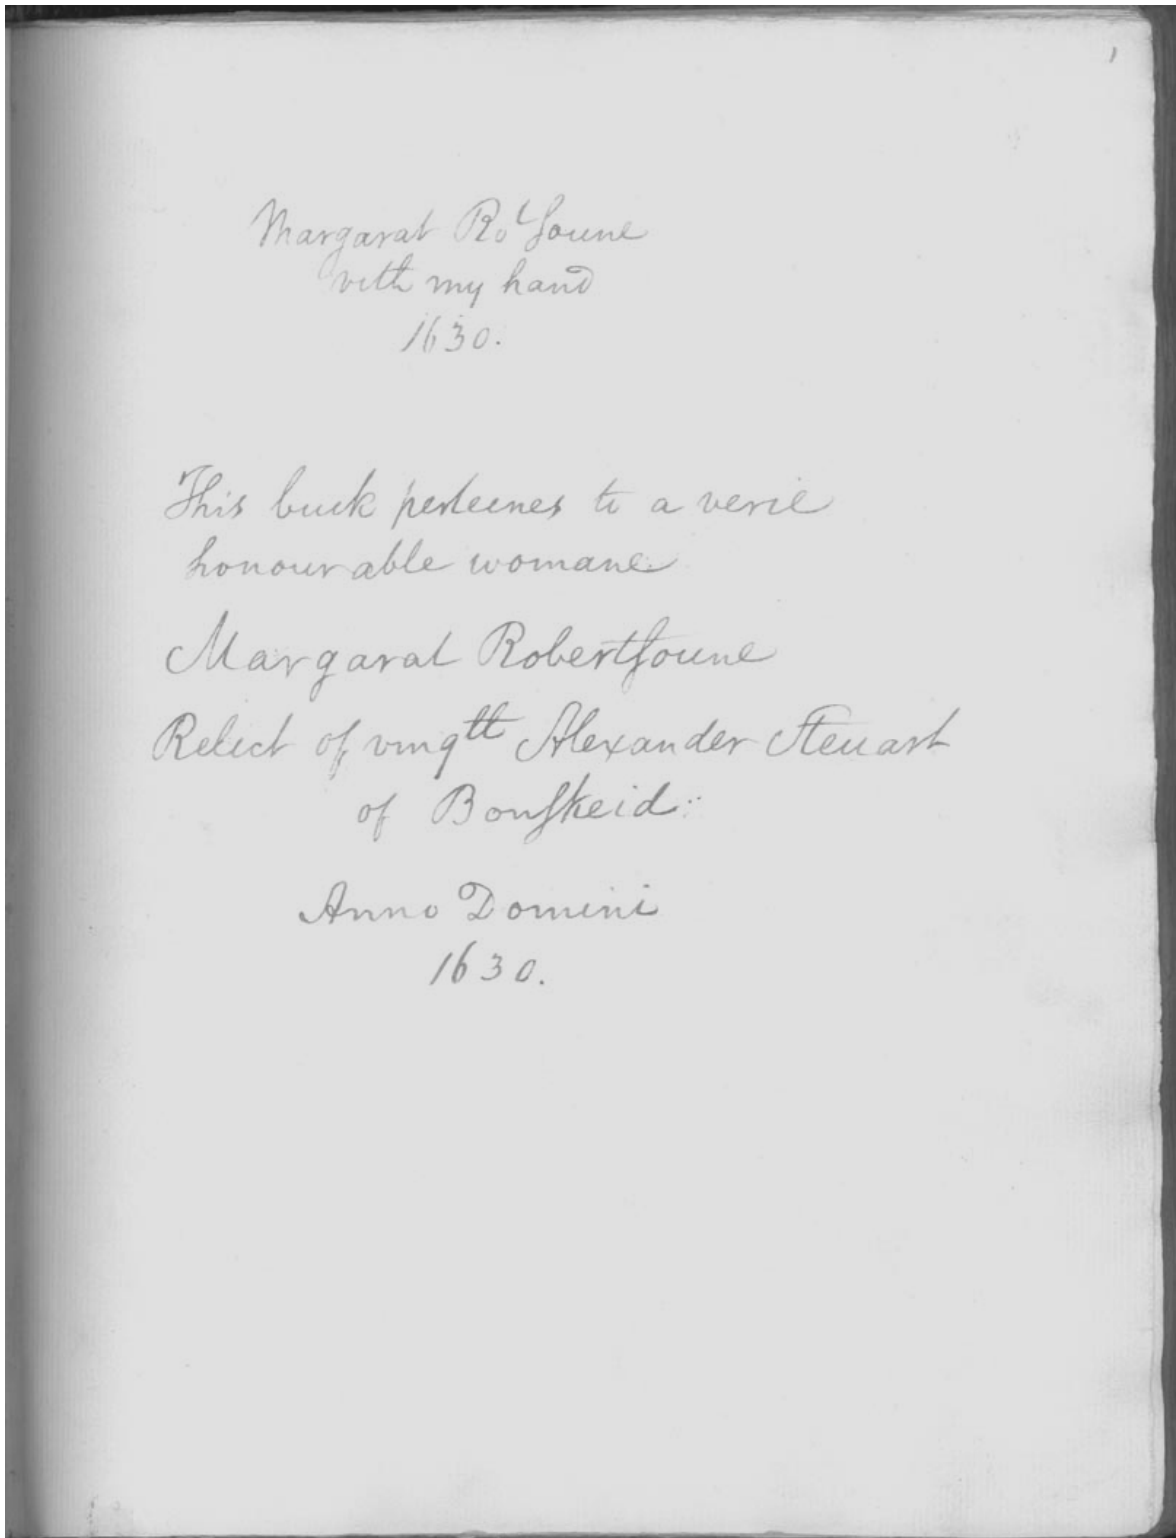 1
Margarat Roᵗſoune
vith my hand
1630.
This buck perteenes to a verie
honourable womane
Margarat Robertſoune
Relict of vmqᵗᵗ Alexander Steuart
of Bonſkeid:
Anno Domini
1630.